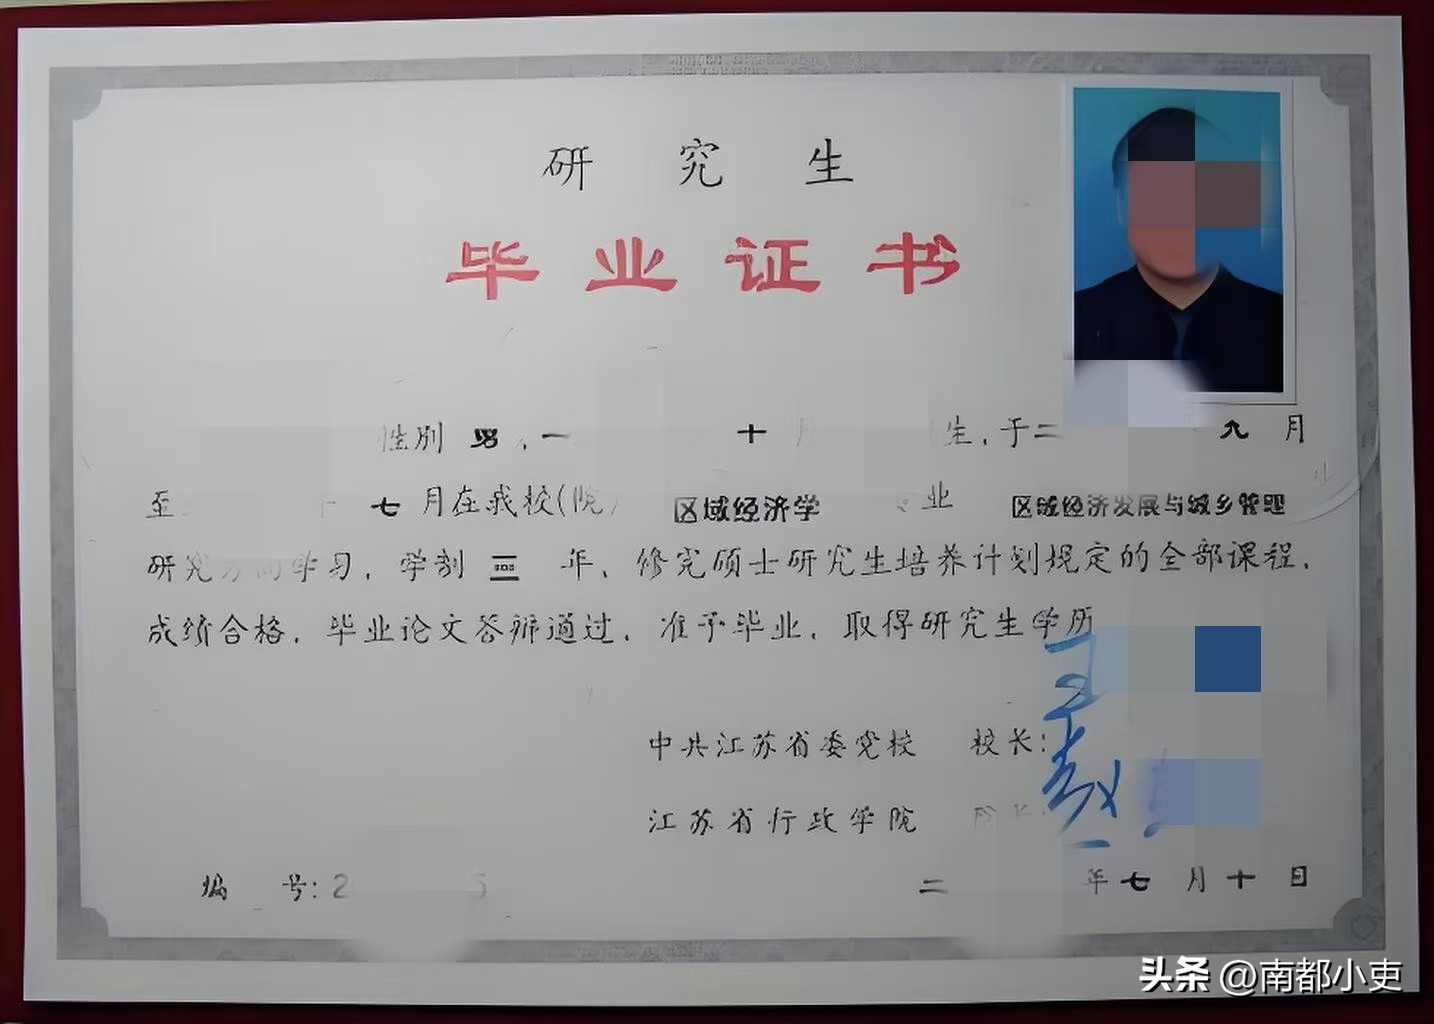 研究生
毕业证书
性别 男,一 十 月 生,于二 九 月
至 七 月在我校(院) 区域经济学 专业 区域经济发展与城乡管理
研究方向学习,学制 三 年,修完硕士研究生培养计划规定的全部课程,
成绩合格,毕业论文答辩通过,准予毕业,取得研究生学历
中共江苏省委党校 校长:
江苏省行政学院 院长:
编 号:2 5 二 年七月十日
头条 @南都小吏